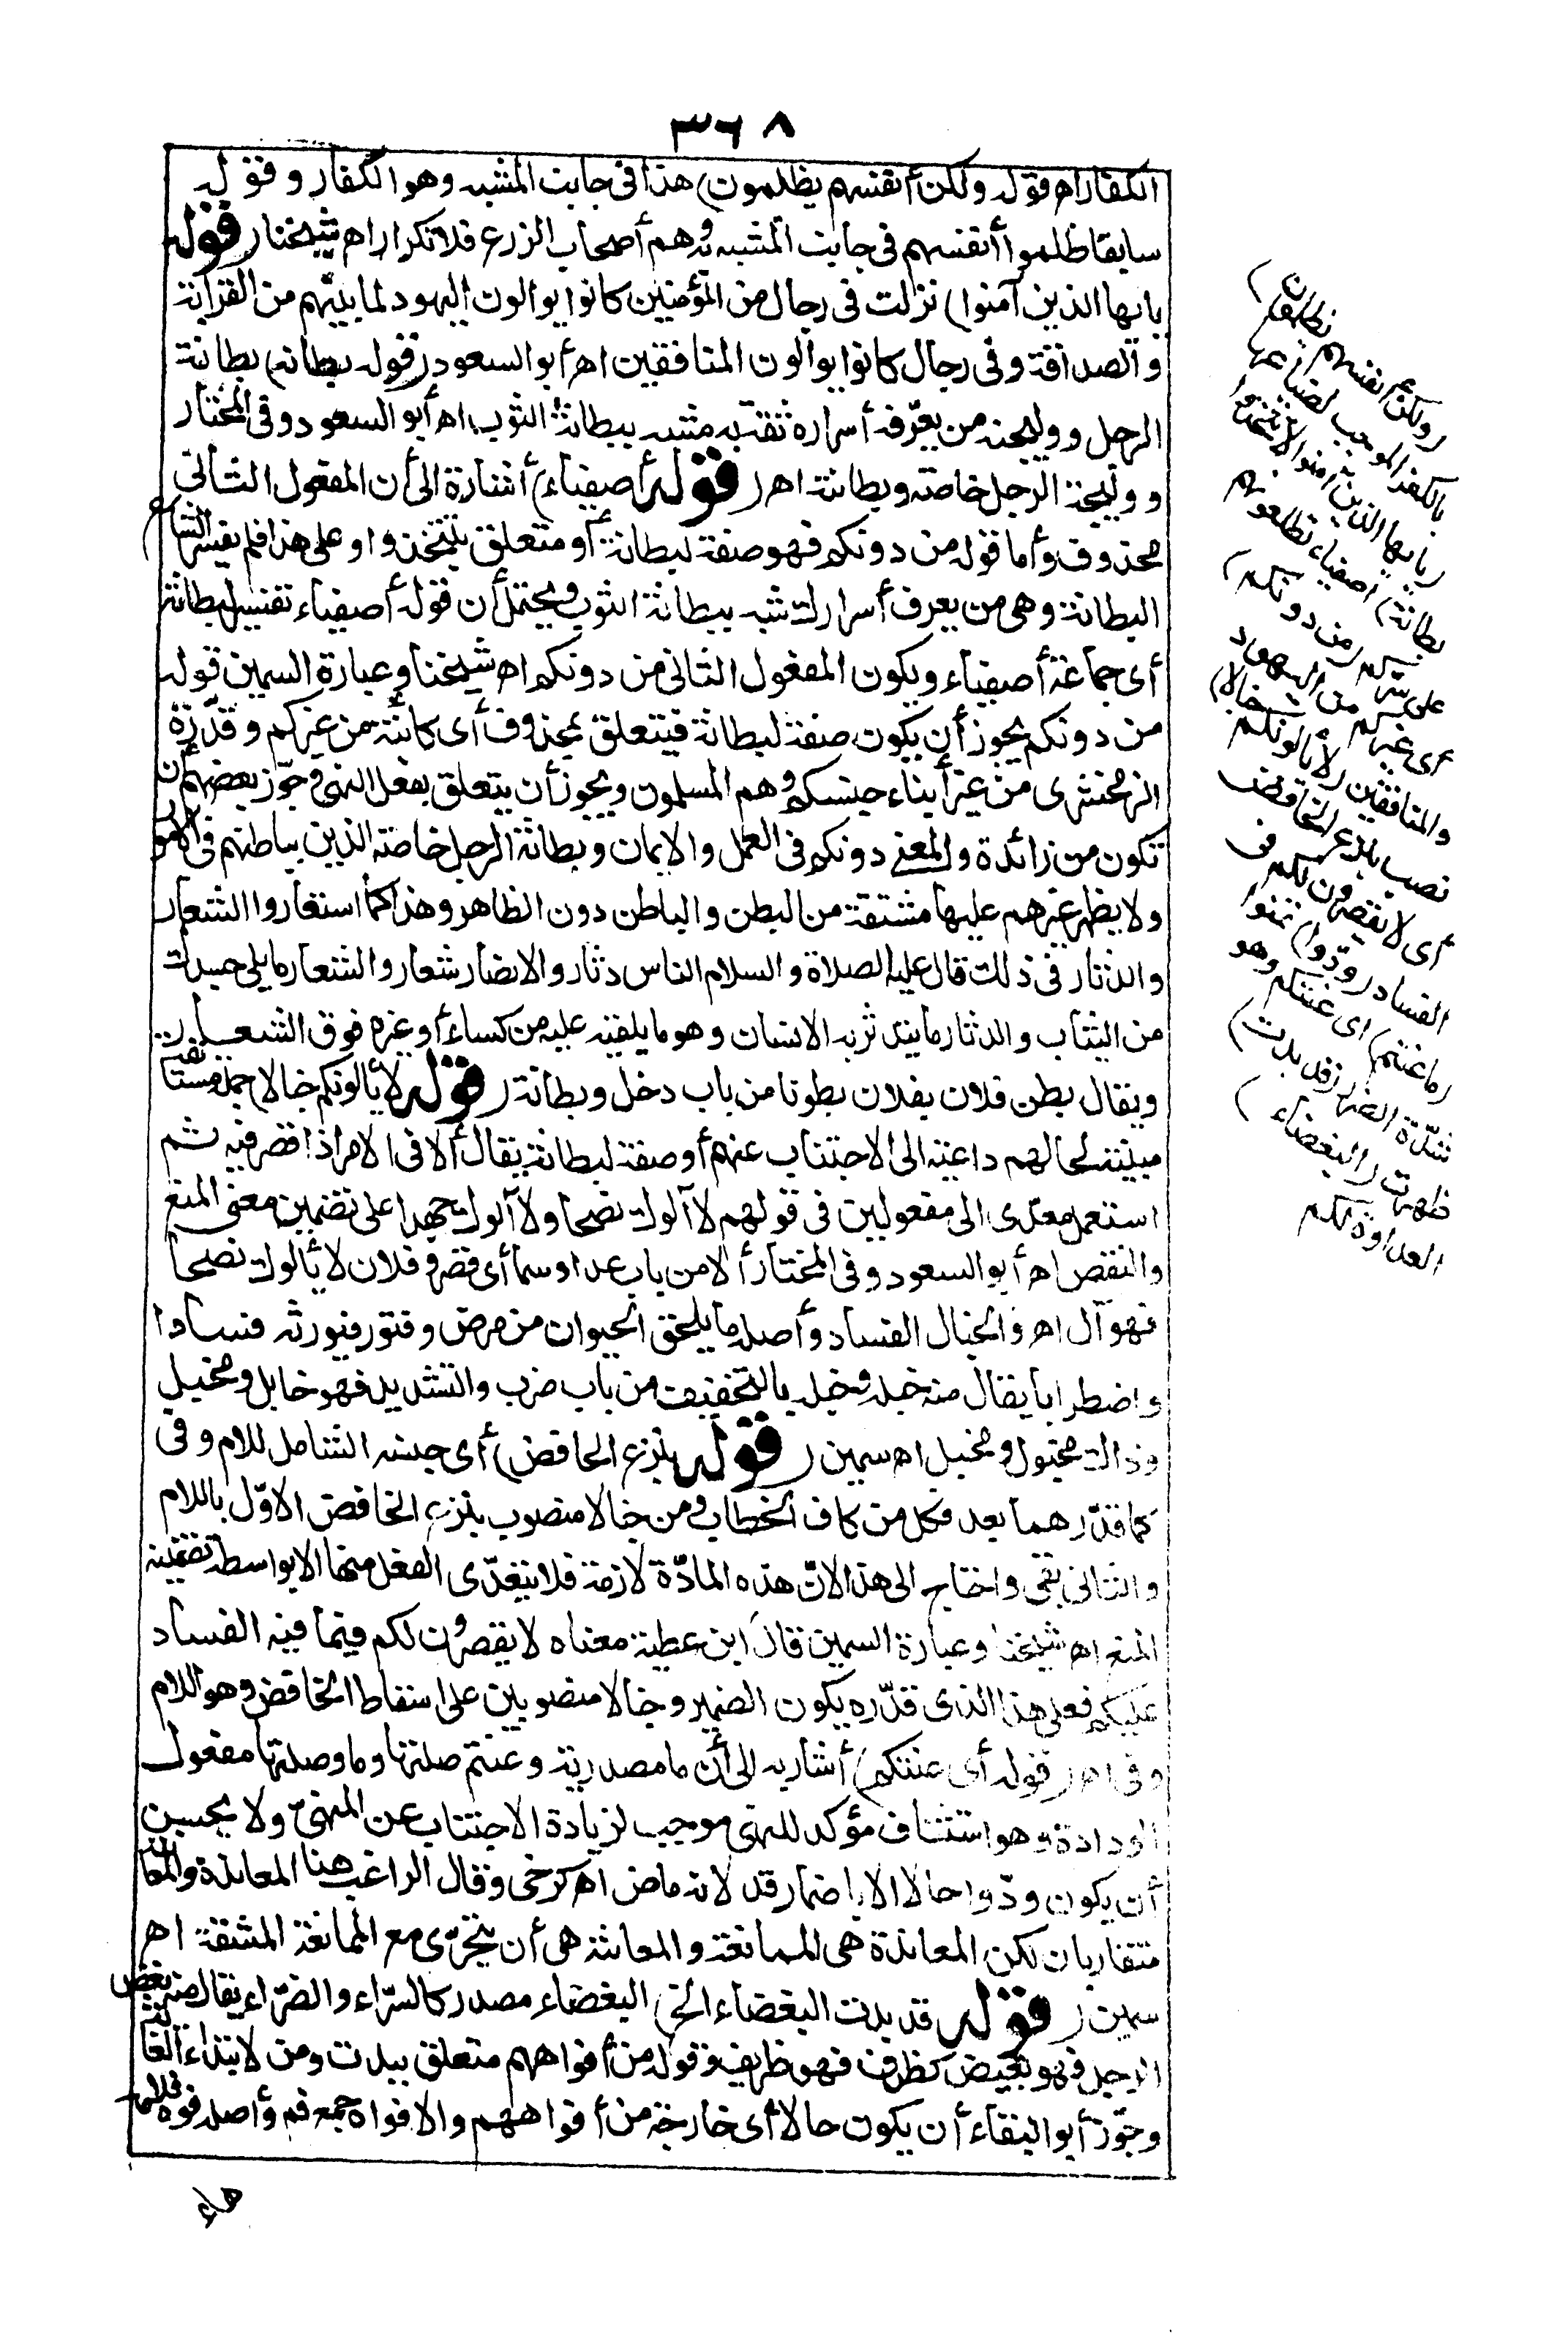 ٣٦٨
الكفار اه قوله ولكن أنفسهم يظلمون) هذا فى جانب المشبه وهو الكفار وقوله
سابقا ظلموا أنفسهم فى جانب المشبه به وهم أصحاب الزرع فلا تكرار اه شيخنا (قوله
يا يها الذين آمنوا) نزلت فى رجال من المؤمنين كانوا يوالون اليهود لما بينهم من القرابة
والصداقة وفى رجال كانوا يوالون المنافقين اه أبو السعود (قوله بطانة) بطانة
الرجل ووليجته من يعرّفه أسراره ثقة به مشبه ببطانة الثوب اه أبو السعود وفى المختار
ووليجة الرجل خاصته وبطانته اه (قوله أصفياء) أشارة الى أن المفعول الثانى
محذوف وأما قوله من دونكم فهو صفة لبطانة أو متعلق بتتخذوا وعلى هذا فلم يفسر الشارح
البطانة وهى من يعرف أسرارك شبه ببطانة الثوب ويحتمل أن قوله أصفياء تفسير لبطانة
أى جماعة أصفياء ويكون المفعول الثانى من دونكم اه شيخنا وعبارة السمين قوله
من دونكم يجوز أن يكون صفة لبطانة فيتعلق بمحذوف أى كائنة من غيركم وقدّره
الزمخشرى من غير أبناء جنسكم وهم المسلمون ويجوز أن يتعلق بفعل النهى وجوّز بعضهم أن
تكون من زائدة والمعنى دونكم فى العمل والايمان وبطانة الرجل خاصته الذين يباطنهم فى الامور
ولا يظهر غيرهم عليها مشتقة من البطن والباطن دون الظاهر وهذا كما استعاروا الشعار
والدثار فى ذلك قال عليه الصلاة والسلام الناس دثار والانصار شعار والشعار ما يلى جسدك
من الثياب والدثار ما يتدثر به الانسان وهو ما يلقيه عليه من كساء أو غيره فوق الشعار
ويقال بطن فلان بفلان بطونا من باب دخل وبطانة (قوله لا يألونكم خبالا) جملة مستأنفة
مبينة لحالهم داعية الى الاجتناب عنهم أو صفة لبطانة يقال ألا فى الامر اذا قصر فيه ثم
استعمل معدّى الى مفعولين فى قولهم لا آلوك نصحا ولا آلوك جهدا على تضمين معنى المنع
والنقص اه أبو السعود وفى المختار ألا من باب عدا وسما أى قصر وفلان لا يألوك نصحا
فهو آل اه والخبال الفساد وأصله ما يلحق الحيوان من مرض وفتور فيورثه فسادا
واضطرابا يقال منه خبله وخبله بالتخفيف من باب ضرب والتشديد فهو خابل ومخبل
وذاك مخبول ومخبل اه سمين (قوله بنزع الخافض) أى جنسه الشامل للام وفى
كما قدّرهما بعد فكل من كاف الخطاب ومن خبالا منصوب بنزع الخافض الاوّل باللام
والثانى بفى واحتاج الى هذا لانّ هذه المادّة لازمة فلا يتعدّى الفعل منها الا بواسطة تضمينه
المنع اه شيخنا وعبارة السمين قال ابن عطية معناه لا يقصرون لكم فيما فيه الفساد
عليكم فعلى هذا الذى قدّره يكون الضمير وخبالا منصوبين على اسقاط الخافض وهو اللام
وفى اه (قوله أى عنتكم) أشار به الى أن ما مصدرية وعنتم صلتها وما وصلتها مفعول
الودادة وهو استئناف مؤكد للنهى موجب لزيادة الاجتناب عن المنهىّ ولا يحسن
أن يكون ودّوا حالا الا باضمار قد لانه ماض اه كرخى وقال الراغب هنا المعاندة والمعانتة
متقاربان لكن المعاندة هى الممانعة والمعانتة هى أن يتحرّى مع الممانعة المشقة اه
سمين (قوله قد بدت البغضاء الخ) البغضاء مصدر كالسرّاء والضرّاء يقال منه بغض
الرجل فهو بغيض كظرف فهو ظريف وقوله من أفواههم متعلق ببدت ومن لابتداء الغاية
وجوّز أبو البقاء أن يكون حالا أى خارجة من أفواههم والافواه جمع فم وأصله فوه فلامه
هاء
(ولكن أنفسهم يظلمون)
بالكفر الموجب لضياعها
(يا يها الذين آمنوا لا تتخذوا
بطانة) أصفياء تطلعونهم
على سركم (من دونكم)
أى غيركم من اليهود
والمنافقين (لا يألونكم خبالا)
نصب بنزع الخافض
أى لا يقصرون لكم فى
الفساد (ودّوا) تمنوا
(ما عنتم) أى عنتكم وهو
شدّة الضرر (قد بدت)
ظهرت (البغضاء)
العداوة لكم